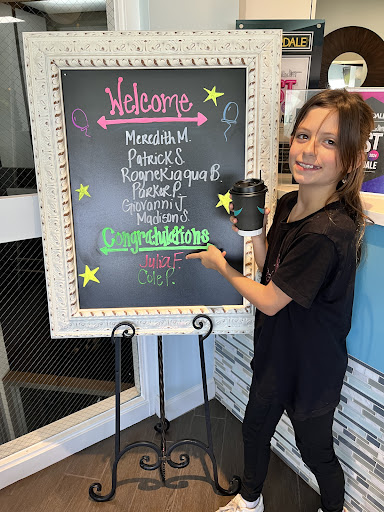 DALE
Welcome
Meredith M.
Patrick S.
Roonekiaqua B.
Parker P.
Giovanni J.
Madison S.
Congratulations
Julia F.
Cole P.